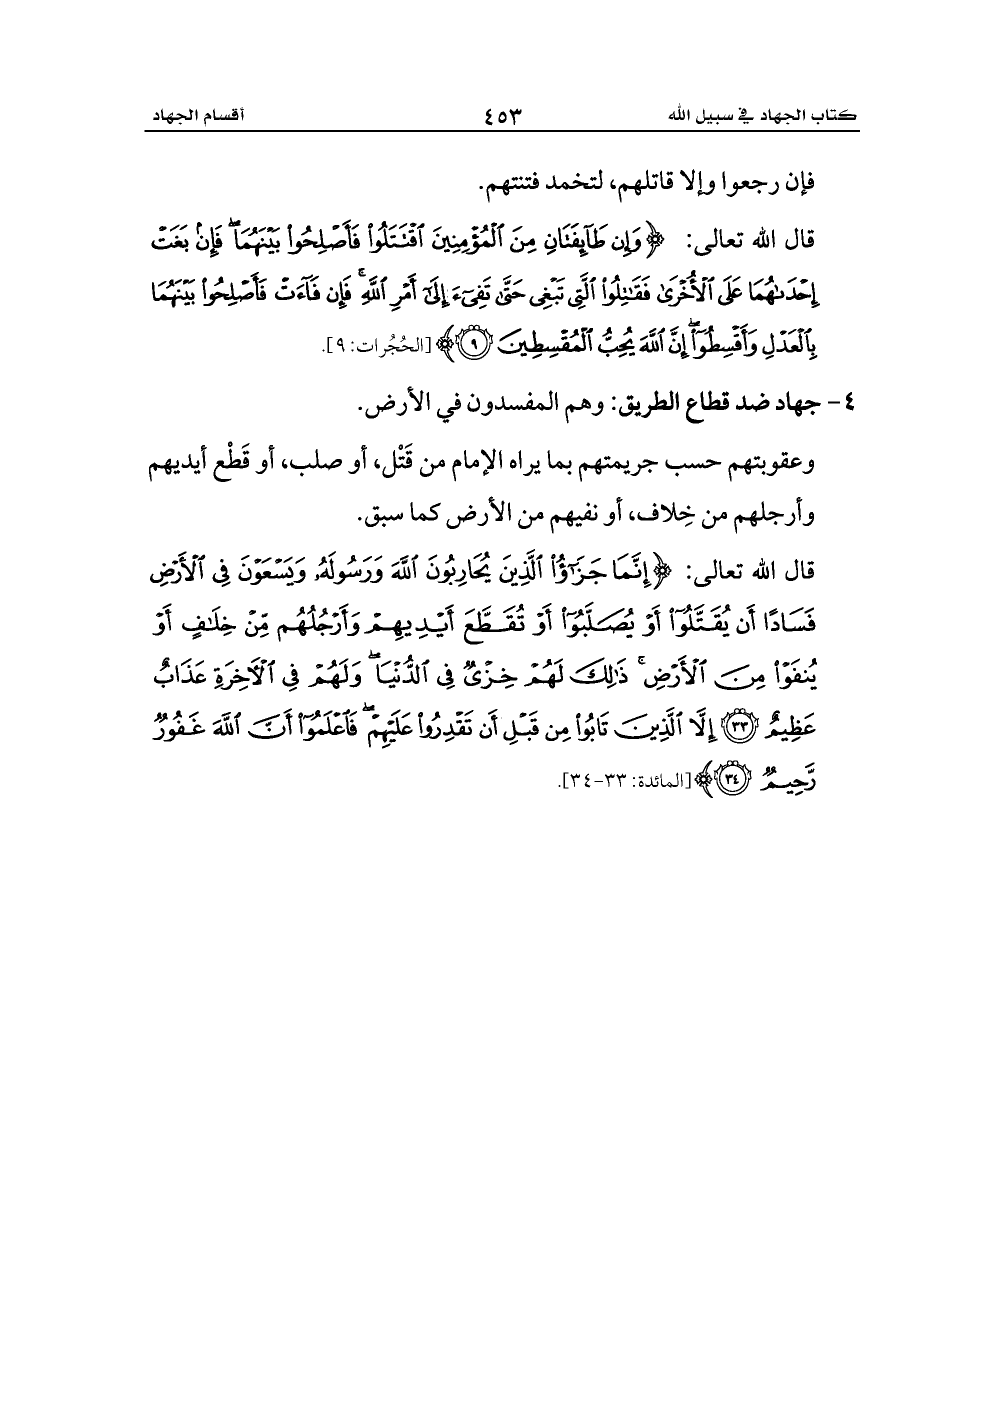 كتاب الجهاد في سبيل الله ٤٥٣ أقسام الجهاد
فإن رجعوا وإلا قاتلهم، لتخمد فتنتهم.
قال الله تعالى: ﴿وَإِن طَآئِفَتَانِ مِنَ ٱلْمُؤْمِنِينَ ٱقْتَتَلُوا۟ فَأَصْلِحُوا۟ بَيْنَهُمَا ۖ فَإِنۢ بَغَتْ
إِحْدَىٰهُمَا عَلَى ٱلْأُخْرَىٰ فَقَـٰتِلُوا۟ ٱلَّتِى تَبْغِى حَتَّىٰ تَفِىٓءَ إِلَىٰٓ أَمْرِ ٱللَّهِ ۚ فَإِن فَآءَتْ فَأَصْلِحُوا۟ بَيْنَهُمَا
بِٱلْعَدْلِ وَأَقْسِطُوٓا۟ ۖ إِنَّ ٱللَّهَ يُحِبُّ ٱلْمُقْسِطِينَ ۝٩﴾ [الحُجُرات: ٩].
٤- جهاد ضد قطاع الطريق: وهم المفسدون في الأرض.
وعقوبتهم حسب جريمتهم بما يراه الإمام من قَتْل، أو صلب، أو قَطْع أيديهم
وأرجلهم من خِلاف، أو نفيهم من الأرض كما سبق.
قال الله تعالى: ﴿إِنَّمَا جَزَٰٓؤُا۟ ٱلَّذِينَ يُحَارِبُونَ ٱللَّهَ وَرَسُولَهُۥ وَيَسْعَوْنَ فِى ٱلْأَرْضِ
فَسَادًا أَن يُقَتَّلُوٓا۟ أَوْ يُصَلَّبُوٓا۟ أَوْ تُقَطَّعَ أَيْدِيهِمْ وَأَرْجُلُهُم مِّنْ خِلَـٰفٍ أَوْ
يُنفَوْا۟ مِنَ ٱلْأَرْضِ ۚ ذَٰلِكَ لَهُمْ خِزْىٌ فِى ٱلدُّنْيَا ۖ وَلَهُمْ فِى ٱلْـَٔاخِرَةِ عَذَابٌ
عَظِيمٌ ۝٣٣ إِلَّا ٱلَّذِينَ تَابُوا۟ مِن قَبْلِ أَن تَقْدِرُوا۟ عَلَيْهِمْ ۖ فَٱعْلَمُوٓا۟ أَنَّ ٱللَّهَ غَفُورٌ
رَّحِيمٌ ۝٣٤﴾ [المائدة: ٣٣-٣٤].